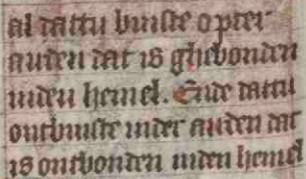 al dattu binste opter
auden dat is ghebonden
inden hemel. Ende dattu
ontbinste inder auden dat
is ontbonden inden hemel